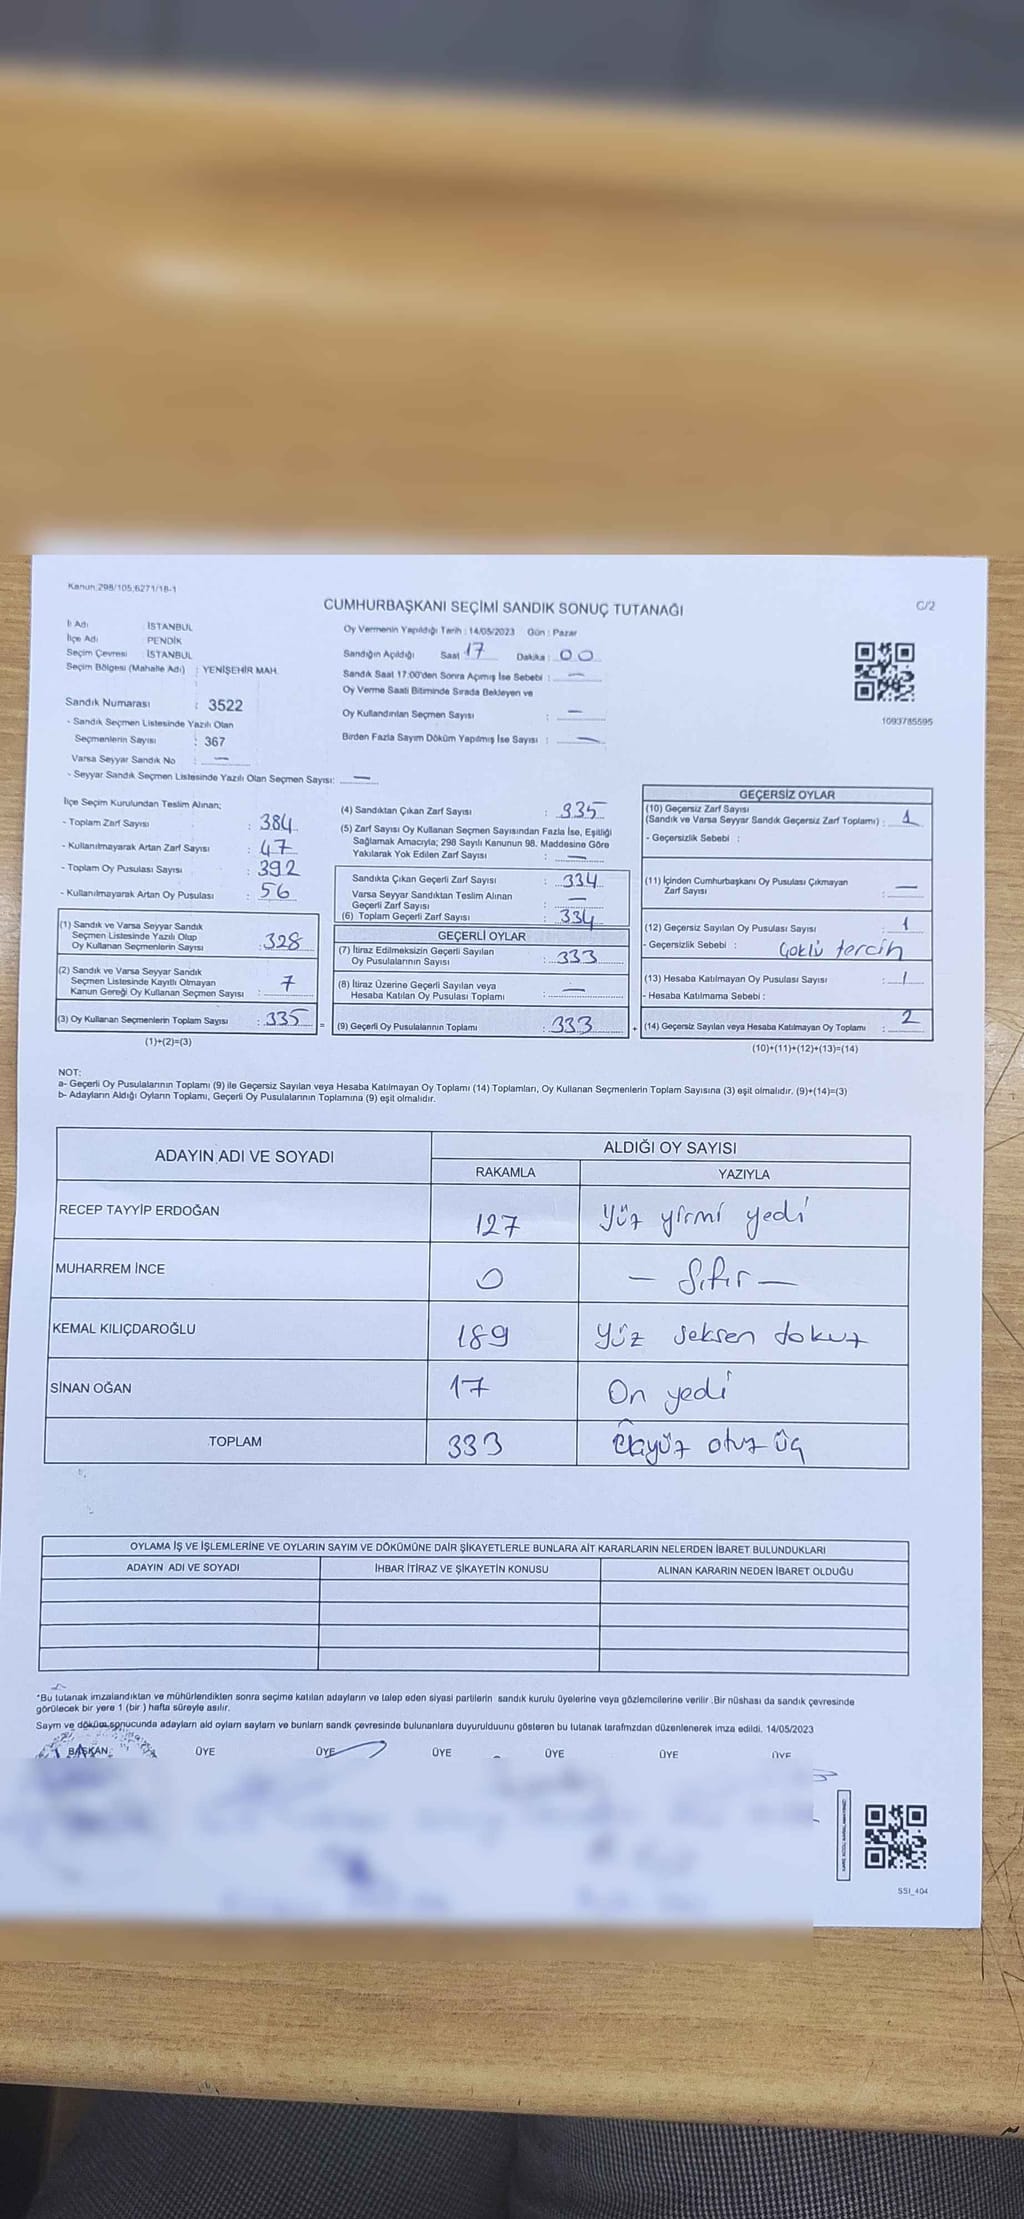 Kanun:298/105;6271/18-1
CUMHURBAŞKANI SEÇİMİ SANDIK SONUÇ TUTANAĞI
C/2
İl Adı : İSTANBUL
İlçe Adı : PENDİK
Seçim Çevresi : İSTANBUL
Seçim Bölgesi (Mahalle Adı) : YENİŞEHİR MAH.
Sandık Numarası : 3522
- Sandık Seçmen Listesinde Yazılı Olan
Seçmenlerin Sayısı : 367
Varsa Seyyar Sandık No : —
- Seyyar Sandık Seçmen Listesinde Yazılı Olan Seçmen Sayısı: —
Oy Vermenin Yapıldığı Tarih : 14/05/2023 Gün : Pazar
Sandığın Açıldığı Saat 17 Dakika : 00
Sandık Saat 17:00'den Sonra Açımış İse Sebebi : —
Oy Verme Saati Bitiminde Sırada Bekleyen ve
Oy Kullandırılan Seçmen Sayısı : —
Birden Fazla Sayım Döküm Yapılmış İse Sayısı : —
1093785595
İlçe Seçim Kurulundan Teslim Alınan;
- Toplam Zarf Sayısı : 384
- Kullanılmayarak Artan Zarf Sayısı : 47
- Toplam Oy Pusulası Sayısı : 392
- Kullanılmayarak Artan Oy Pusulası : 56
(1) Sandık ve Varsa Seyyar Sandık
Seçmen Listesinde Yazılı Olup
Oy Kullanan Seçmenlerin Sayısı : 328
(2) Sandık ve Varsa Seyyar Sandık
Seçmen Listesinde Kayıtlı Olmayan
Kanun Gereği Oy Kullanan Seçmen Sayısı : 7
(3) Oy Kullanan Seçmenlerin Toplam Sayısı : 335
(1)+(2)=(3)
(4) Sandıktan Çıkan Zarf Sayısı : 335
(5) Zarf Sayısı Oy Kullanan Seçmen Sayısından Fazla İse, Eşitliği
Sağlamak Amacıyla; 298 Sayılı Kanunun 98. Maddesine Göre
Yakılarak Yok Edilen Zarf Sayısı : —
Sandıkta Çıkan Geçerli Zarf Sayısı : 334
Varsa Seyyar Sandıktan Teslim Alınan
Geçerli Zarf Sayısı : —
(6) Toplam Geçerli Zarf Sayısı : 334
GEÇERLİ OYLAR
(7) İtiraz Edilmeksizin Geçerli Sayılan
Oy Pusulalarının Sayısı : 333
(8) İtiraz Üzerine Geçerli Sayılan veya
Hesaba Katılan Oy Pusulası Toplamı : —
= (9) Geçerli Oy Pusulalarının Toplamı : 333 +
GEÇERSİZ OYLAR
(10) Geçersiz Zarf Sayısı
(Sandık ve Varsa Seyyar Sandık Geçersiz Zarf Toplamı) : 1
- Geçersizlik Sebebi :
(11) İçinden Cumhurbaşkanı Oy Pusulası Çıkmayan
Zarf Sayısı : —
(12) Geçersiz Sayılan Oy Pusulası Sayısı : 1
- Geçersizlik Sebebi : Çoklu tercih
(13) Hesaba Katılmayan Oy Pusulası Sayısı : 1
- Hesaba Katılmama Sebebi :
(14) Geçersiz Sayılan veya Hesaba Katılmayan Oy Toplamı : 2
(10)+(11)+(12)+(13)=(14)
NOT:
a- Geçerli Oy Pusulalarının Toplamı (9) ile Geçersiz Sayılan veya Hesaba Katılmayan Oy Toplamı (14) Toplamları, Oy Kullanan Seçmenlerin Toplam Sayısına (3) eşit olmalıdır. (9)+(14)=(3)
b- Adayların Aldığı Oyların Toplamı, Geçerli Oy Pusulalarının Toplamına (9) eşit olmalıdır.
ADAYIN ADI VE SOYADI
ALDIĞI OY SAYISI
RAKAMLA YAZIYLA
RECEP TAYYİP ERDOĞAN 127 Yüz yirmi yedi
MUHARREM İNCE 0 — Sıfır —
KEMAL KILIÇDAROĞLU 189 Yüz seksen dokuz
SİNAN OĞAN 17 On yedi
TOPLAM 333 otuz üç
OYLAMA İŞ VE İŞLEMLERİNE VE OYLARIN SAYIM VE DÖKÜMÜNE DAİR ŞİKAYETLERLE BUNLARA AİT KARARLARIN NELERDEN İBARET BULUNDUKLARI
ADAYIN ADI VE SOYADI İHBAR İTİRAZ VE ŞİKAYETİN KONUSU ALINAN KARARIN NEDEN İBARET OLDUĞU
*Bu tutanak imzalandıktan ve mühürlendikten sonra seçime katılan adayların ve talep eden siyasi partilerin sandık kurulu üyelerine veya gözlemcilerine verilir .Bir nüshası da sandık çevresinde
görülecek bir yere 1 (bir ) hafta süreyle asılır.
Saym ve döküm sonucunda adaylarn ald oylarn saylarn ve bunlarn sandk çevresinde bulunanlara duyurulduunu gösteren bu tutanak tarafmzdan düzenlenerek imza edildi. 14/05/2023
BAŞKAN ÜYE ÜYE ÜYE ÜYE ÜYE ÜYE
SSI_404